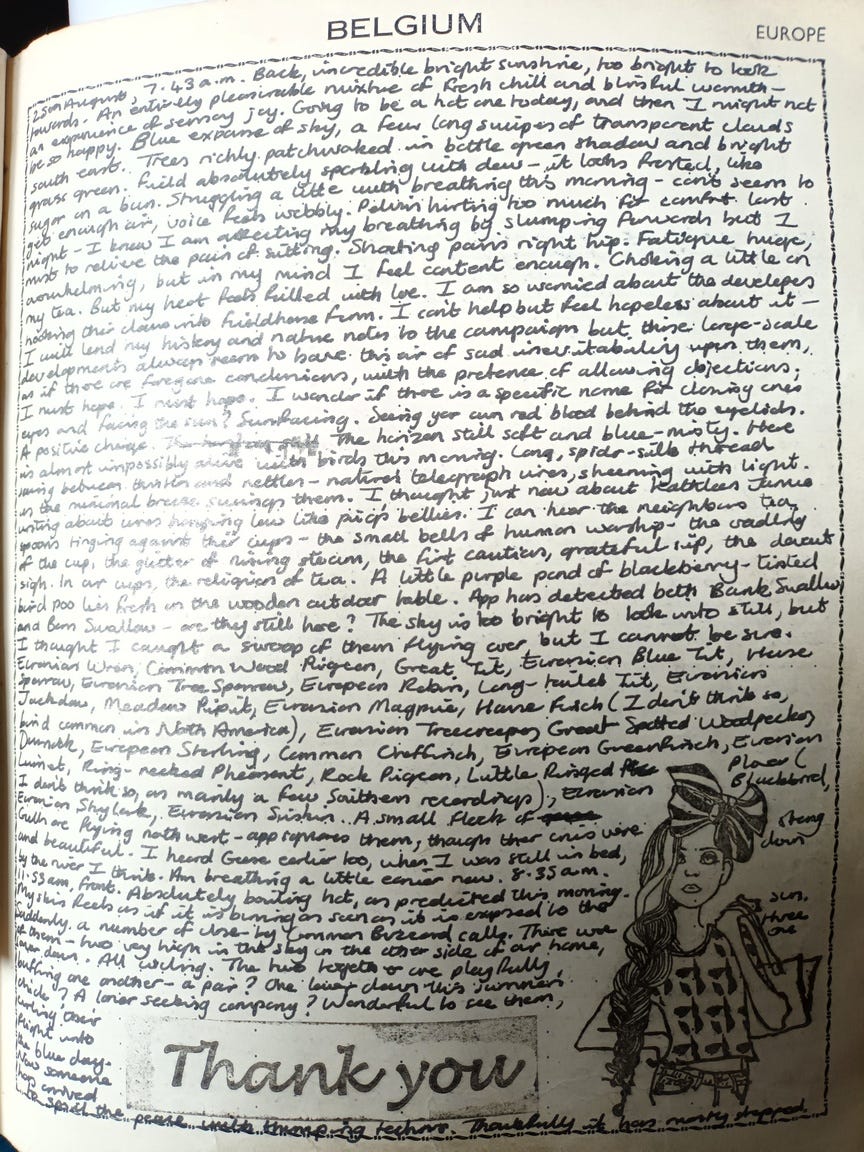 BELGIUM
EUROPE
25th August, 7.43 a.m. Back, incredible bright sunshine, too bright to look
towards. An entirely pleasurable mixture of fresh chill and blissful warmth –
an experience of sensory joy. Going to be a hot one today, and then I might not
be so happy. Blue expanse of sky, a few long swipes of transparent clouds
south east. Trees richly patchworked in bottle green shadow and bright
grass green. Field absolutely sparkling with dew – it looks frosted, like
sugar on a bun. Struggling a little with breathing this morning – can't seem to
get enough air, voice feels wobbly. Pelvis hurting too much for comfort last
night – I know I am affecting my breathing by slumping forwards but I
must to relieve the pain of sitting. Shooting pains right hip. Fatigue huge,
overwhelming, but in my mind I feel content enough. Choking a little on
my tea. But my heart feels filled with love. I am so worried about the developers
hooking their claws into Fieldhouse Farm. I can't help but feel hopeless about it –
I will lend my history and nature notes to the campaign but these large-scale
developments always seem to have this air of sad inevitability upon them,
as if they are foregone conclusions, with the pretence of allowing objections;
I must hope. I must hope. I wonder if there is a specific name for closing ones
eyes and facing the sun? Sunfacing. Seeing your own red blood behind the eyelids.
A positive charge. The horizon still soft and blue-misty. Here
is almost impossibly alive with birds this morning. Long, spider-silk thread
swing between thistles and nettles – natures telegraph wires, sheening with light.
as the minimal breeze swings them. I thought just now about Kathleen Jamie
writing about wires hanging low like pigs bellies. I can hear the neighbours tea
spoons ringing against their cups – the small bells of human worship – the cradling
of the cup, the glitter of rising steam, the first cautious, grateful sip, the devout
sigh. In our cups, the religion of tea. A little purple pond of blackberry-tinted
bird poo lies fresh on the wooden outdoor table. App has detected both Bank Swallow
and Barn Swallow – are they still here? The sky is too bright to look into still, but
I thought I caught a swoop of them flying over but I cannot be sure.
Eurasian Wren, Common Wood Pigeon, Great Tit, Eurasian Blue Tit, House
Sparrow, Eurasian Tree Sparrow, European Robin, Long-tailed Tit, Eurasian
Jackdaw, Meadow Pipit, Eurasian Magpie, House Finch (I don't think so,
bird common in North America), Eurasian Treecreeper, Great Spotted Woodpecker,
Dunnock, European Starling, Common Chaffinch, European Greenfinch, Eurasian
Linnet, Ring-necked Pheasant, Rock Pigeon, Little Ringed Plover (
I don't think so, as mainly a few Southern recordings), Eurasian Blackbird,
Eurasian Skylark, Eurasian Siskin. A small fleck of
Gulls are flying north west – app ignores them, though their cries were strong
and beautiful. I heard Geese earlier too, when I was still in bed, down
by the river I think. Am breathing a little easier now. 8.35 a.m.
11.53 am, front. Absolutely boiling hot, as predicted this morning.
My skin feels as if it is burning as soon as it is exposed to the sun.
Suddenly, a number of close by Common Buzzard calls. There were three
of them – two very high in the sky on the other side of our home, one
lower down. All circling. The two together are playfully
buffing one another – a pair? One lower down this summers
chick? A loner seeking company? Wonderful to see them,
hurling their
flight into
the blue day.
Now someone
has arrived
to spoil the peace with thumping techno. Thankfully it has mostly stopped.
Thank you